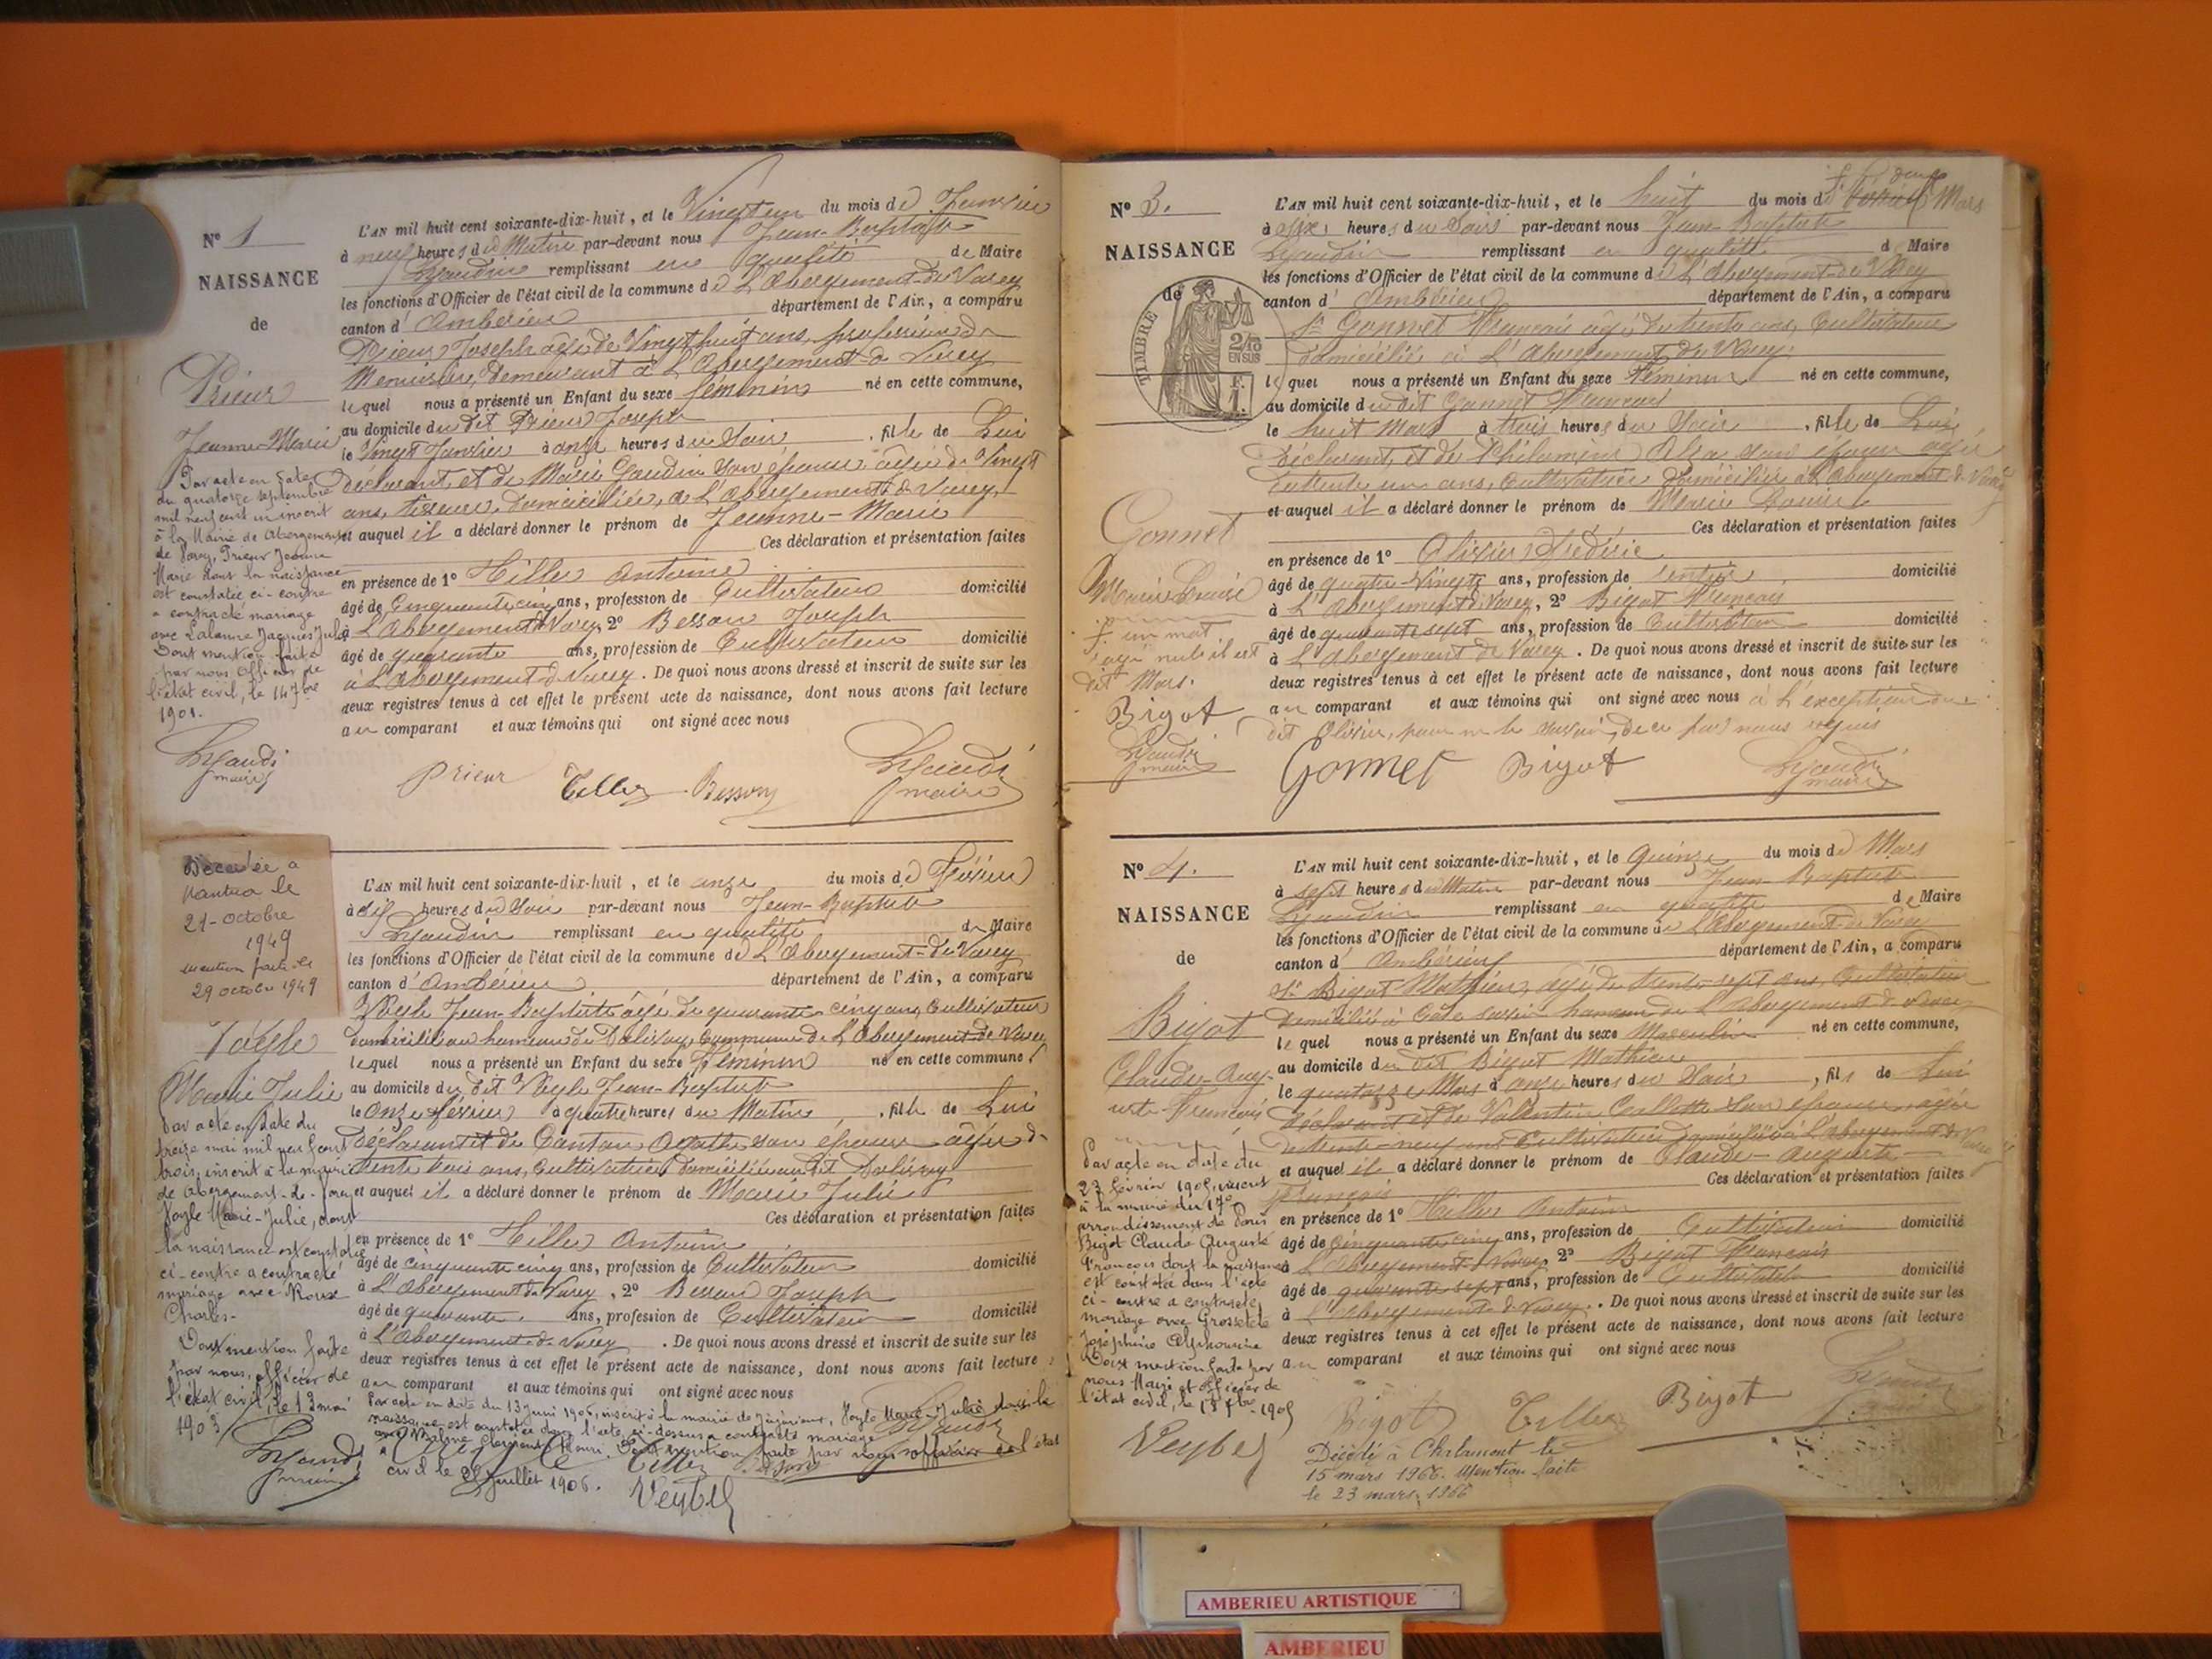 N° 1
NAISSANCE
de
Prieur
Jeanne-Marie
Par acte en date
du quatorze septembre
mil neuf cent un inscrit
à la Mairie de Abergement
de Varey, Prieur Jeanne
Marie dont la naissance
est constatée ci-contre
a contracté mariage
avec Lalanne Jacques Jules
Dont mention faite
par nous Officier de
l'état civil, le 14 7bre
1901.
maire
L'AN mil huit cent soixante-dix-huit, et le Vingt un du mois de Janvier
à neuf heures du Matin par-devant nous Jean-Baptiste
remplissant en qualité de Maire
les fonctions d'Officier de l'état civil de la commune de L'Abergement-de-Varey
canton d'Ambérieu département de l'Ain, a comparu
Prieur Joseph âgé de Vingt huit ans, profession de
Menuisier, demeurant à L'Abergement de Varey
lequel nous a présenté un Enfant du sexe féminin né en cette commune,
au domicile du dit Prieur Joseph
le Vingt Janvier à onze heures du Soir, fille de Lui
déclarant et de Marie Gaudin son épouse âgée de Vingt
ans, domiciliée, à L'Abergement de Varey,
et auquel il a déclaré donner le prénom de Jeanne-Marie
Ces déclaration et présentation faites
en présence de 1° Tiller Antoine
âgé de Cinquante cinq ans, profession de Cultivateur domicilié
à L'Abergement de Varey, 2° Besson Joseph
âgé de quarante ans, profession de Cultivateur domicilié
à L'Abergement de Varey. De quoi nous avons dressé et inscrit de suite sur les
deux registres tenus à cet effet le présent acte de naissance, dont nous avons fait lecture
au comparant et aux témoins qui ont signé avec nous
Prieur Tiller Besson
maire
Décédée à
Nantua le
21-octobre
1949
mention faite le
29 octobre 1949
Vayle
Marie Julie
Par acte en date du
treize mai mil neuf cent
trois, inscrit à la mairie
de Abergement-de-Varey
Vayle Marie-Julie, dont
la naissance est constatée
ci-contre a contracté
mariage avec Roux
Charles-
Dont mention faite
par nous, officier de
l'état civil, le 13 mai
1903
maire
L'AN mil huit cent soixante-dix-huit, et le onze du mois de Février
à six heures du Soir par-devant nous Jean-Baptiste
remplissant en qualité de Maire
les fonctions d'Officier de l'état civil de la commune de L'Abergement-de-Varey
canton d'Ambérieu département de l'Ain, a comparu
Vayle Jean-Baptiste âgé de quarante cinq ans, Cultivateur
domicilié au hameau de commune de L'Abergement-de-Varey
lequel nous a présenté un Enfant du sexe Féminin né en cette commune
au domicile du dit Vayle Jean-Baptiste
le Onze Février à quatre heures du Matin, fille de Lui
déclarant et de son épouse âgée de
trente trois ans, Cultivatrice domiciliée au dit
et auquel il a déclaré donner le prénom de Marie Julie
Ces déclaration et présentation faites
en présence de 1° Tiller Antoine
âgé de cinquante cinq ans, profession de Cultivateur domicilié
à L'Abergement de Varey, 2° Besson Joseph
âgé de quarante ans, profession de Cultivateur domicilié
à L'Abergement-de-Varey. De quoi nous avons dressé et inscrit de suite sur les
deux registres tenus à cet effet le présent acte de naissance, dont nous avons fait lecture
au comparant et aux témoins qui ont signé avec nous
Par acte en date du 13 juin 1906, inscrit à la mairie de Jujurieux, Vayle Marie-Julie dont la
naissance est constatée dans l'acte ci-dessus a contracté mariage
avec Henri. Dont mention faite par nous officier de l'état
civil le juillet 1906.
Tiller
N° 3.
NAISSANCE
de
TIMBRE
EN SUS
Gonnet
Marie Louise
un mot
rayé nul il est
dit Mars.
Bigot
maire
L'AN mil huit cent soixante-dix-huit, et le huit du mois de Mars
à six heures du Soir par-devant nous Jean-Baptiste
remplissant en qualité de Maire
les fonctions d'Officier de l'état civil de la commune de L'Abergement-de-Varey
canton d'Ambérieu département de l'Ain, a comparu
Sr Gonnet François âgé de trente ans, Cultivateur
domicilié à L'Abergement de Varey
lequel nous a présenté un Enfant du sexe Féminin né en cette commune,
au domicile du dit Gonnet François
le huit Mars à trois heures du Soir, fille de Lui
déclarant, et de Philomène son épouse âgée
de trente un ans, Cultivatrice domiciliée à L'Abergement de Varey
et auquel il a déclaré donner le prénom de Marie Louise
Ces déclaration et présentation faites
en présence de 1° Olivier Frédéric
âgé de quatre-Vingts ans, profession de rentier domicilié
à L'Abergement de Varey, 2° Bigot François
âgé de quarante sept ans, profession de Cultivateur domicilié
à L'Abergement de Varey. De quoi nous avons dressé et inscrit de suite sur les
deux registres tenus à cet effet le présent acte de naissance, dont nous avons fait lecture
au comparant et aux témoins qui ont signé avec nous à L'exception du
dit Olivier, pour ne le savoir, de ce par nous requis
Gonnet Bigot
maire
N° 4.
NAISSANCE
de
Bigot
Claude-Aug-
uste François
Par acte en date du
23 février 1905, inscrit
à la mairie du 17e
arrondissement de Paris
Bigot Claude Auguste
François dont la naissance
est constatée dans l'acte
ci-contre a contracté
mariage avec Grossetete
Joséphine Alphonsine
Dont mention faite par
nous Maire et officier de
l'état civil, le 1905
L'AN mil huit cent soixante-dix-huit, et le Quinze du mois de Mars
à sept heures du Matin par-devant nous Jean-Baptiste
remplissant en qualité de Maire
les fonctions d'Officier de l'état civil de la commune de L'Abergement-de-Varey
canton d'Ambérieu département de l'Ain, a comparu
Sr Bigot Mathieu, âgé de trente-sept ans, Cultivateur
domicilié à hameau de L'Abergement de Varey
lequel nous a présenté un Enfant du sexe Masculin né en cette commune,
au domicile du dit Bigot Mathieu
le quatorze Mars à onze heures du Soir, fils de Lui
déclarant et de Valentin Collette son épouse, âgée
de trente-neuf ans Cultivatrice domiciliée à L'Abergement de Varey
et auquel il a déclaré donner le prénom de Claude-Auguste-
François Ces déclaration et présentation faites
en présence de 1° Tiller Antoine
âgé de Cinquante cinq ans, profession de Cultivateur domicilié
à L'Abergement de Varey, 2° Bigot François
âgé de quarante sept ans, profession de Cultivateur domicilié
à L'Abergement de Varey. De quoi nous avons dressé et inscrit de suite sur les
deux registres tenus à cet effet le présent acte de naissance, dont nous avons fait lecture
au comparant et aux témoins qui ont signé avec nous
Bigot Tiller Bigot
Décédé à Chalamont le
15 mars 1966. Mention faite
le 23 mars 1966
AMBERIEU ARTISTIQUE
AMBERIEU